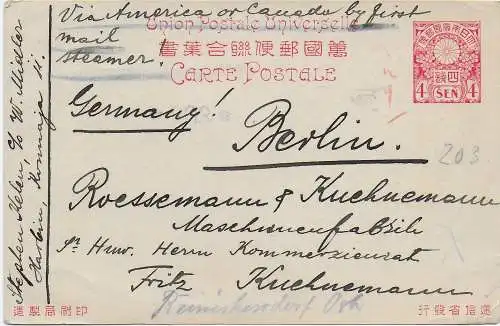 Via America or Canada by first
mail
steamer.
Union Postale Universelle
萬國郵便聯合葉書
CARTE POSTALE
大日本帝國郵便
四錢
4 SEN 4
Germany!
Berlin.
203
Roessemann & Kuehnemann
Maschinenfabrik
Sr. Hrw. Herrn Kommerzienrat
Fritz Kuehnemann
Reinickendorf Ost
Stephen Helen, c/o W. Midler
Harbin,
印刷局製造
遞信省發行